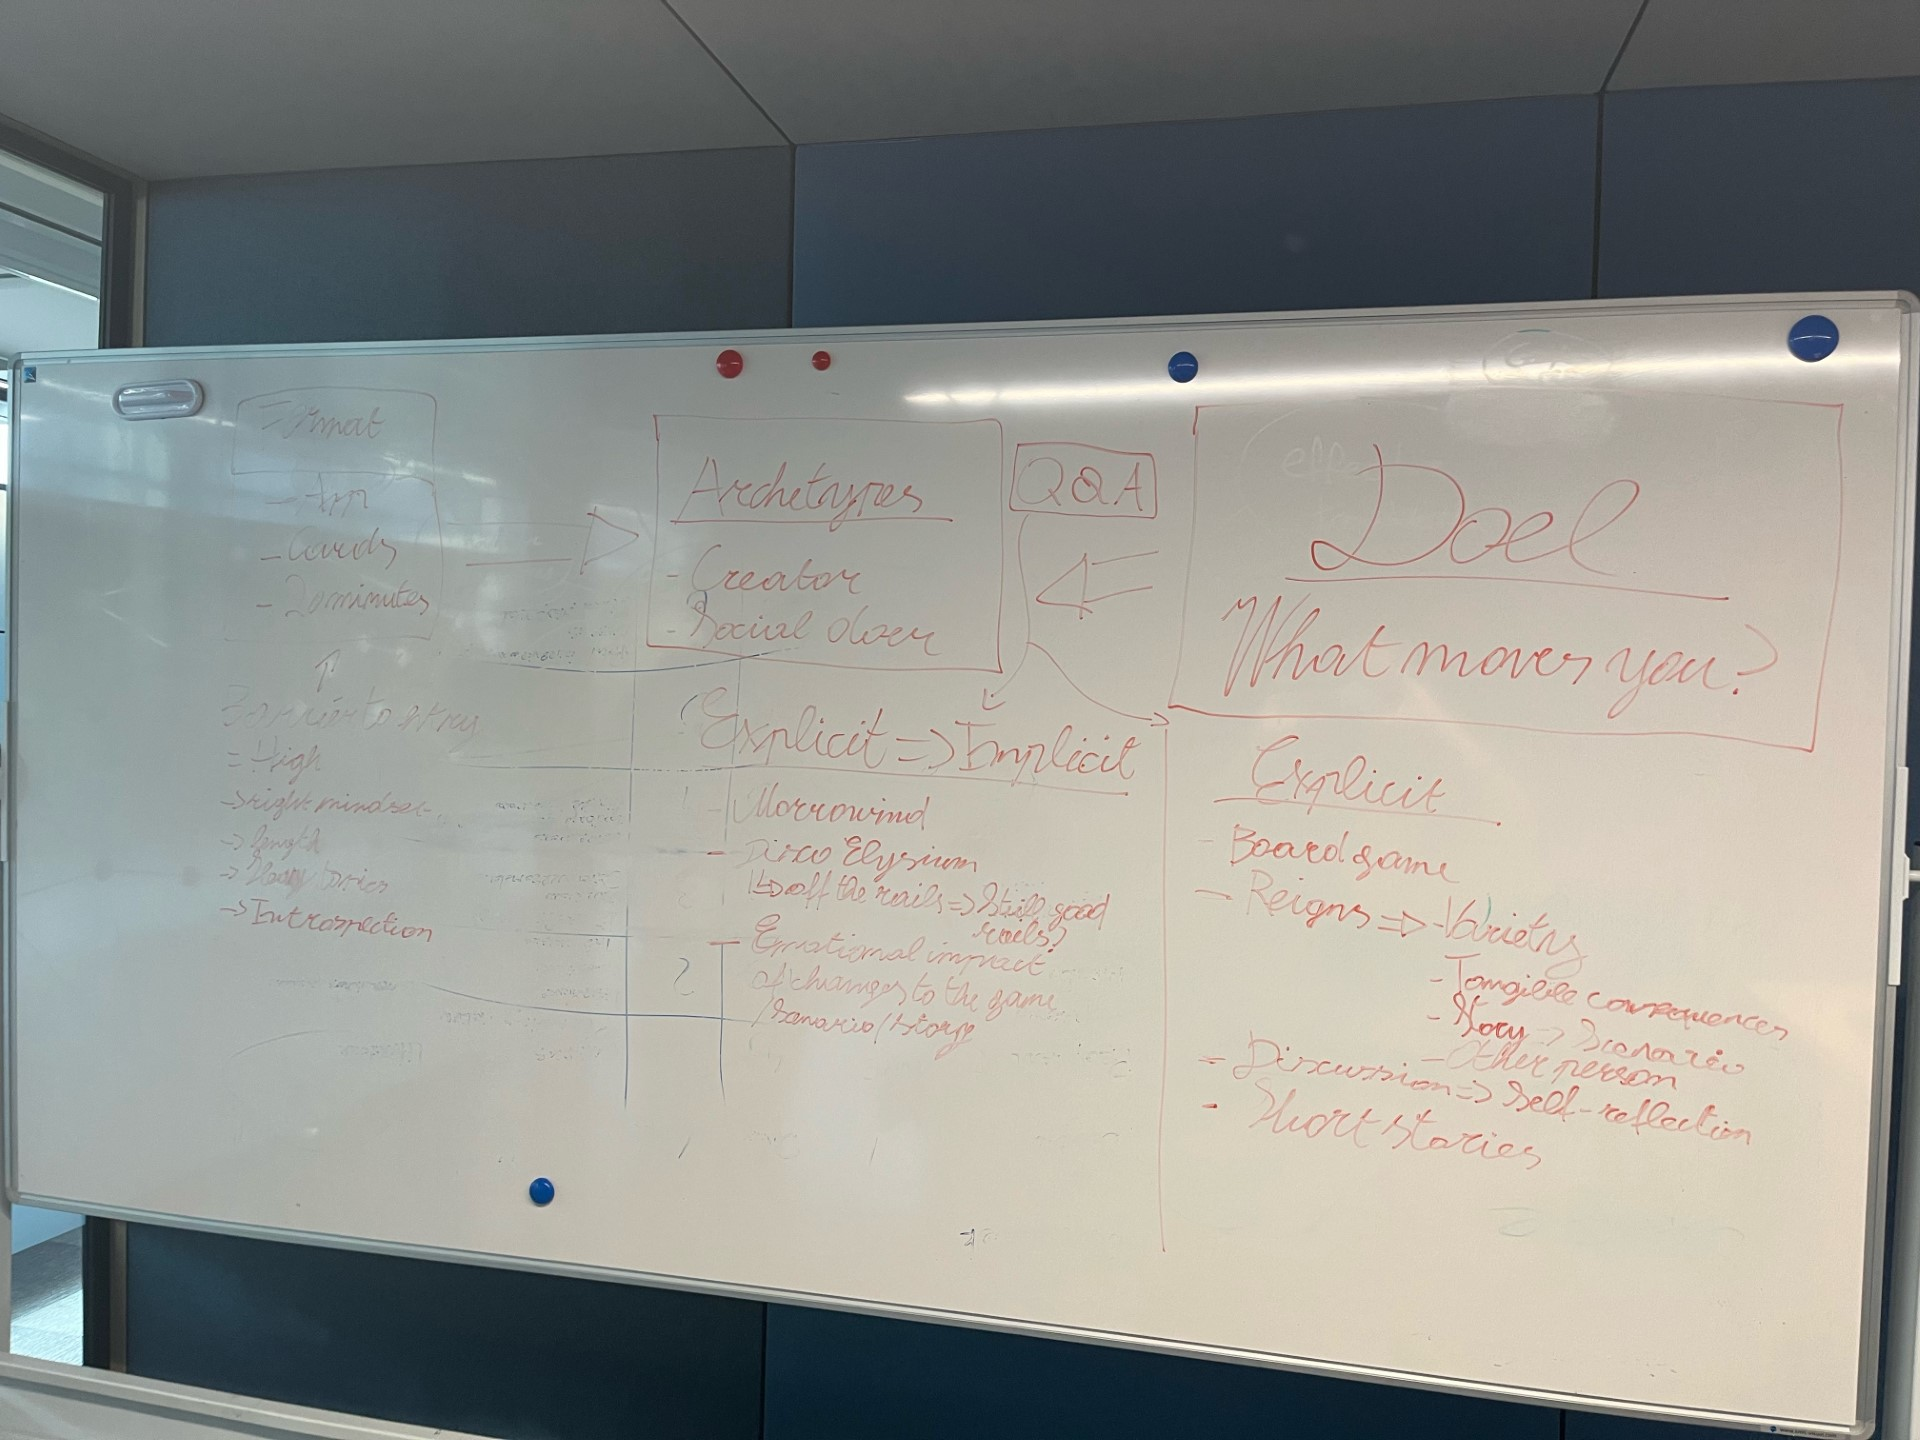 Format
- App
- Cards
- 20 minutes
Barrier to entry
= High
-> right mindset
-> length
-> Introspection
Archetypes
- Creator
- Social doer
Q&A
Doel
What moves you?
Explicit => Implicit
- Morrowind
- Disco Elysium
↳ off the rails => Still good
rails?
- Emotional impact
of changes to the game
/Scenario/Story
Explicit
- Board game
- Reigns => - Variety
- Tangible consequences
- Story -> Scenario
- Other person
- Discussion => Self-reflection
- Short stories